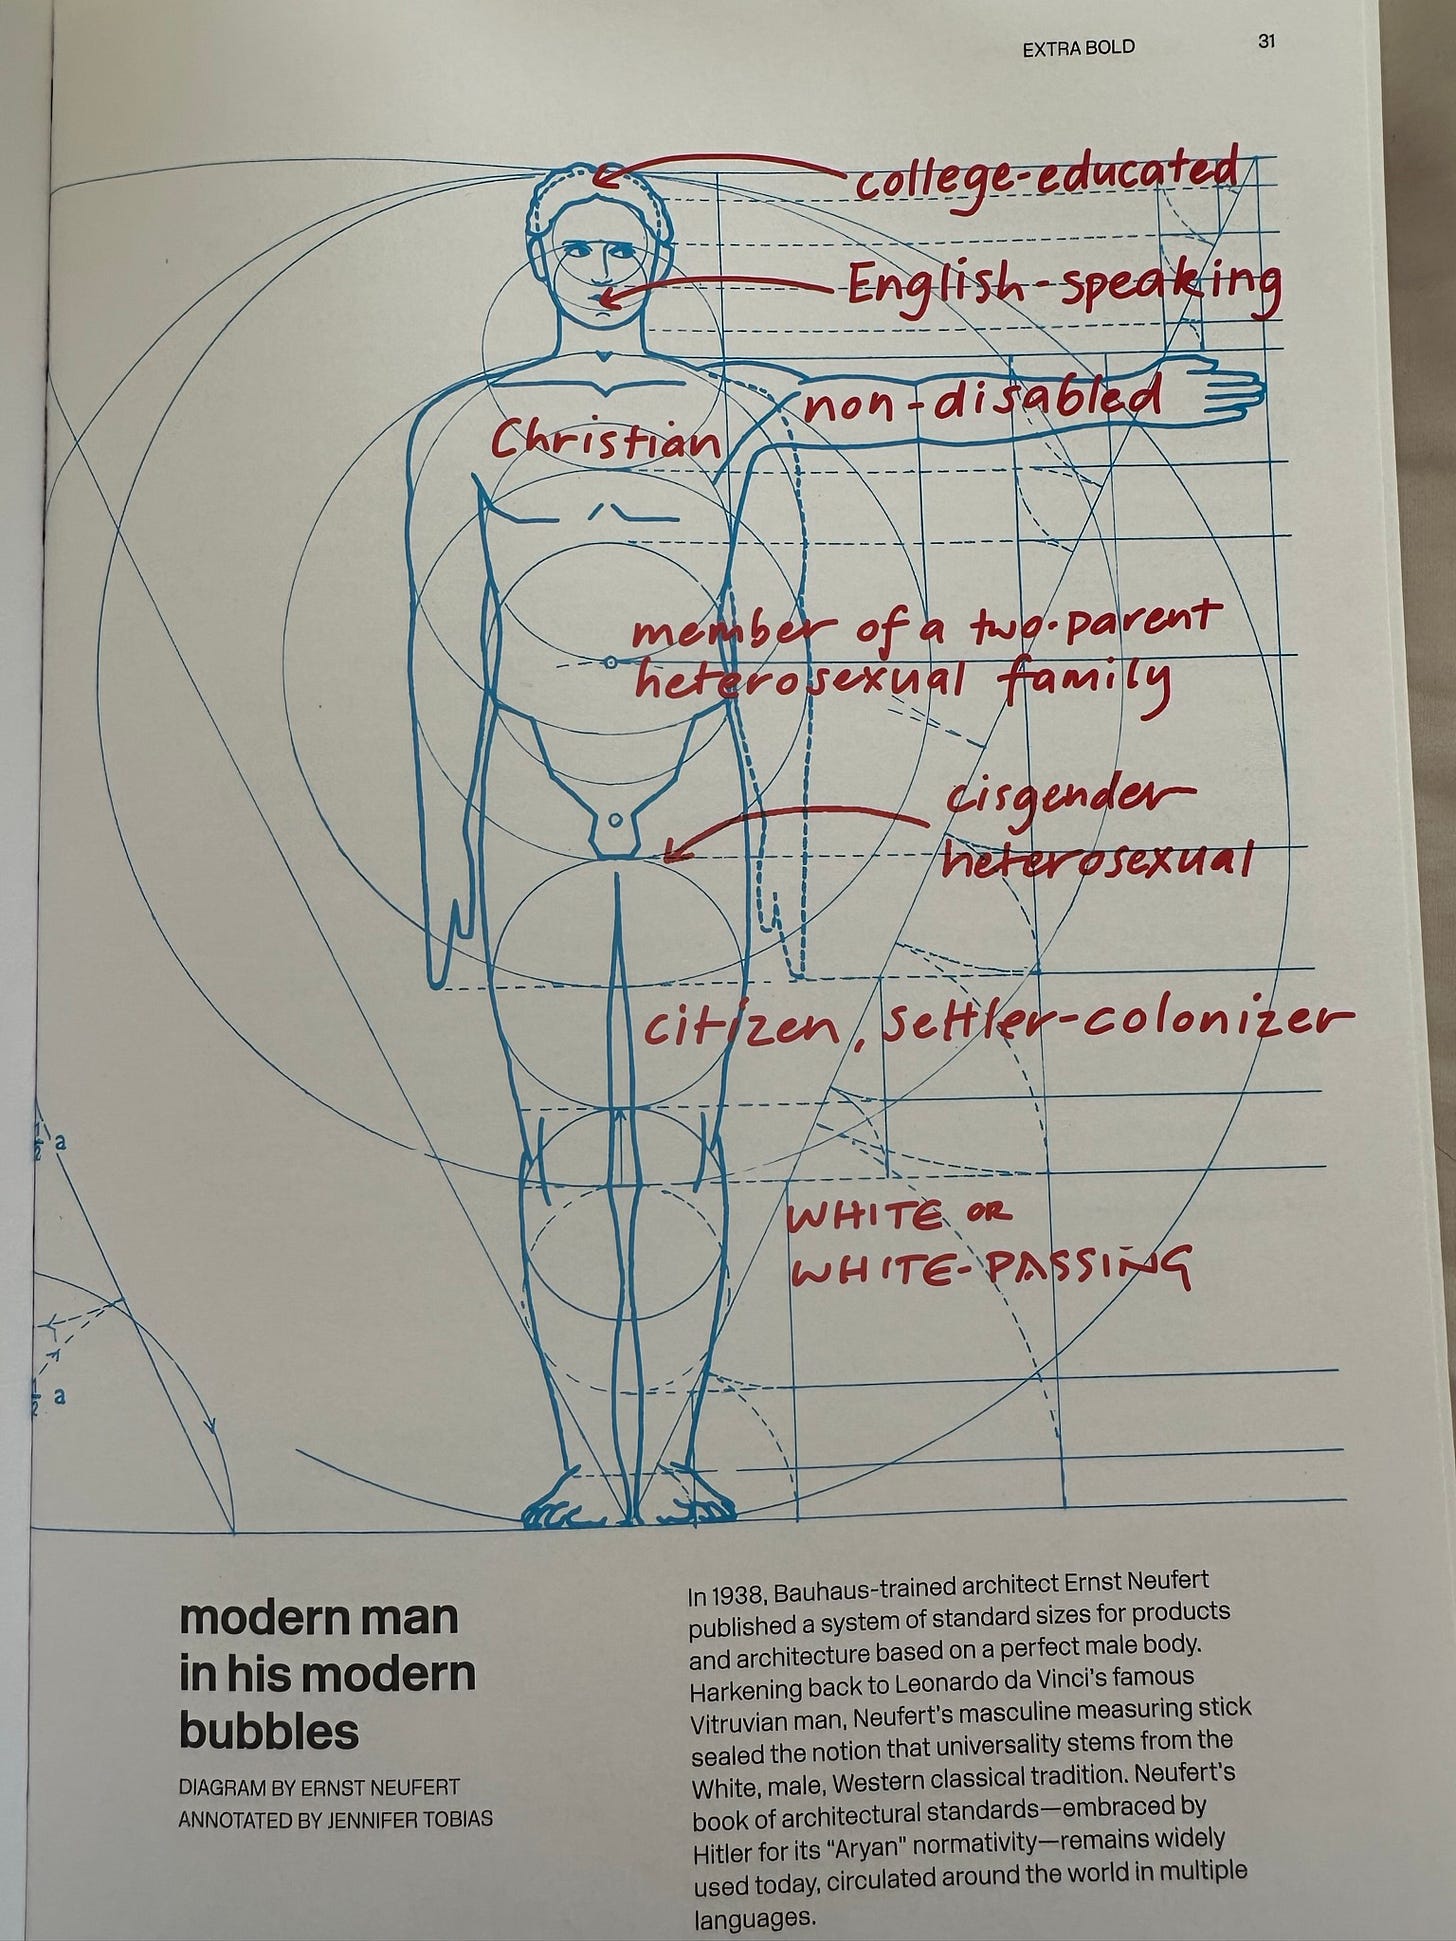 EXTRA BOLD
31
college-educated
English-speaking
non-disabled
Christian
member of a two-parent
heterosexual family
cisgender
heterosexual
citizen, settler-colonizer
a
WHITE OR
WHITE-PASSING
a
modern man
in his modern
bubbles
DIAGRAM BY ERNST NEUFERT
ANNOTATED BY JENNIFER TOBIAS
In 1938, Bauhaus-trained architect Ernst Neufert
published a system of standard sizes for products
and architecture based on a perfect male body.
Harkening back to Leonardo da Vinci's famous
Vitruvian man, Neufert's masculine measuring stick
sealed the notion that universality stems from the
White, male, Western classical tradition. Neufert's
book of architectural standards—embraced by
Hitler for its "Aryan" normativity—remains widely
used today, circulated around the world in multiple
languages.